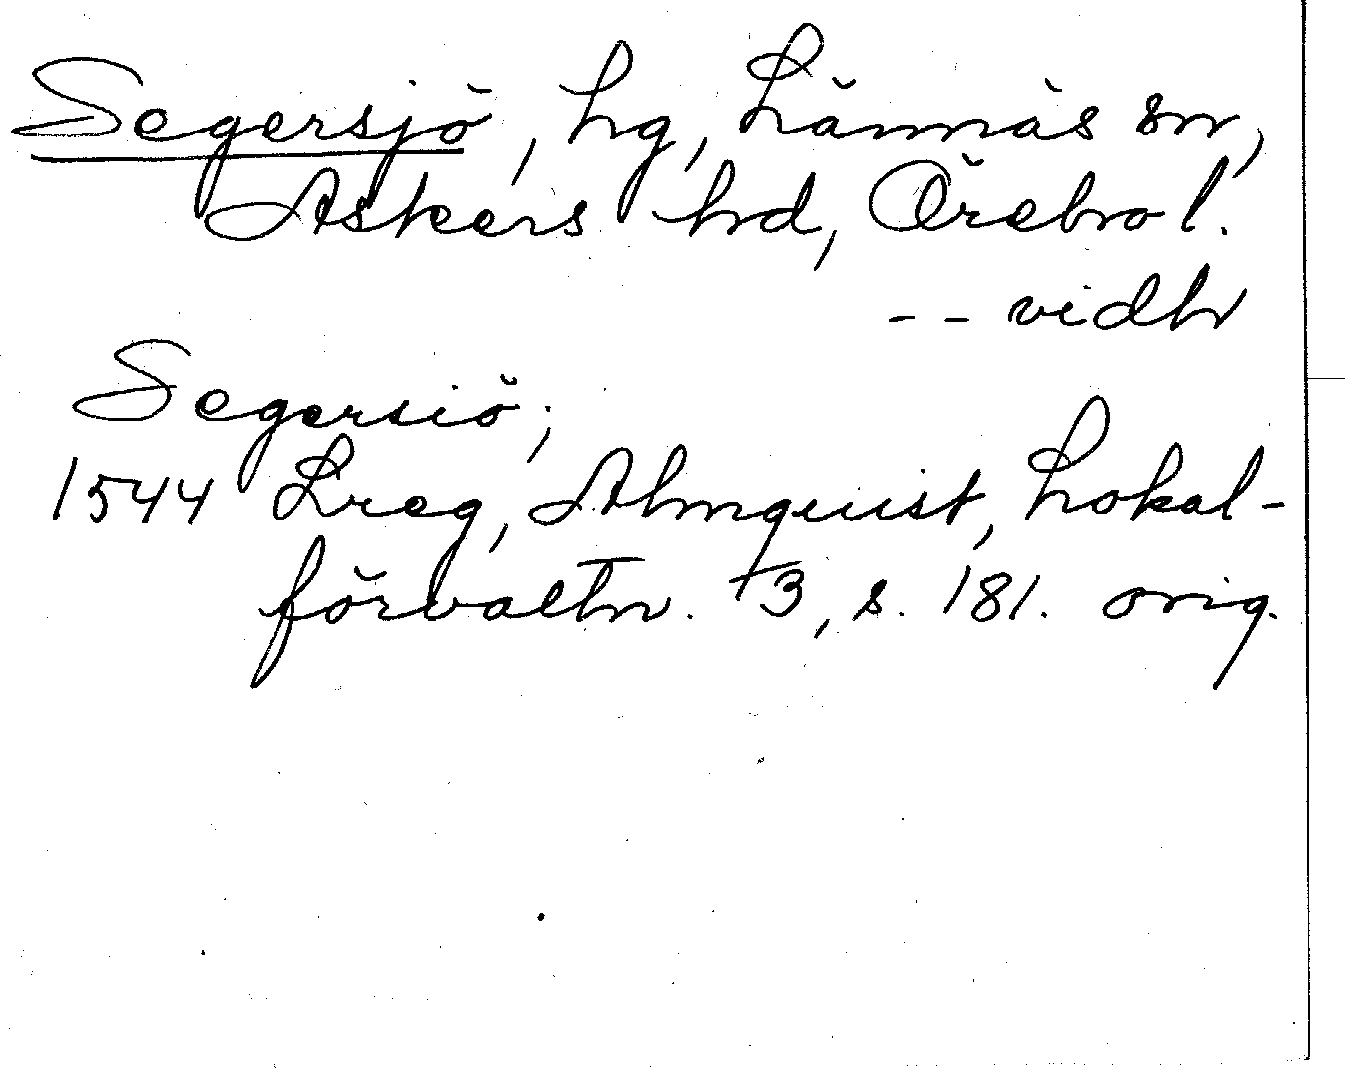 Segersjö, hg, Lännäs sn,
Askers hd, Örebro l.
-- vidh
Segersiö;
1544 Lreg, Almquist, Lokal-
förvaltn. †3, s. 181. orig.